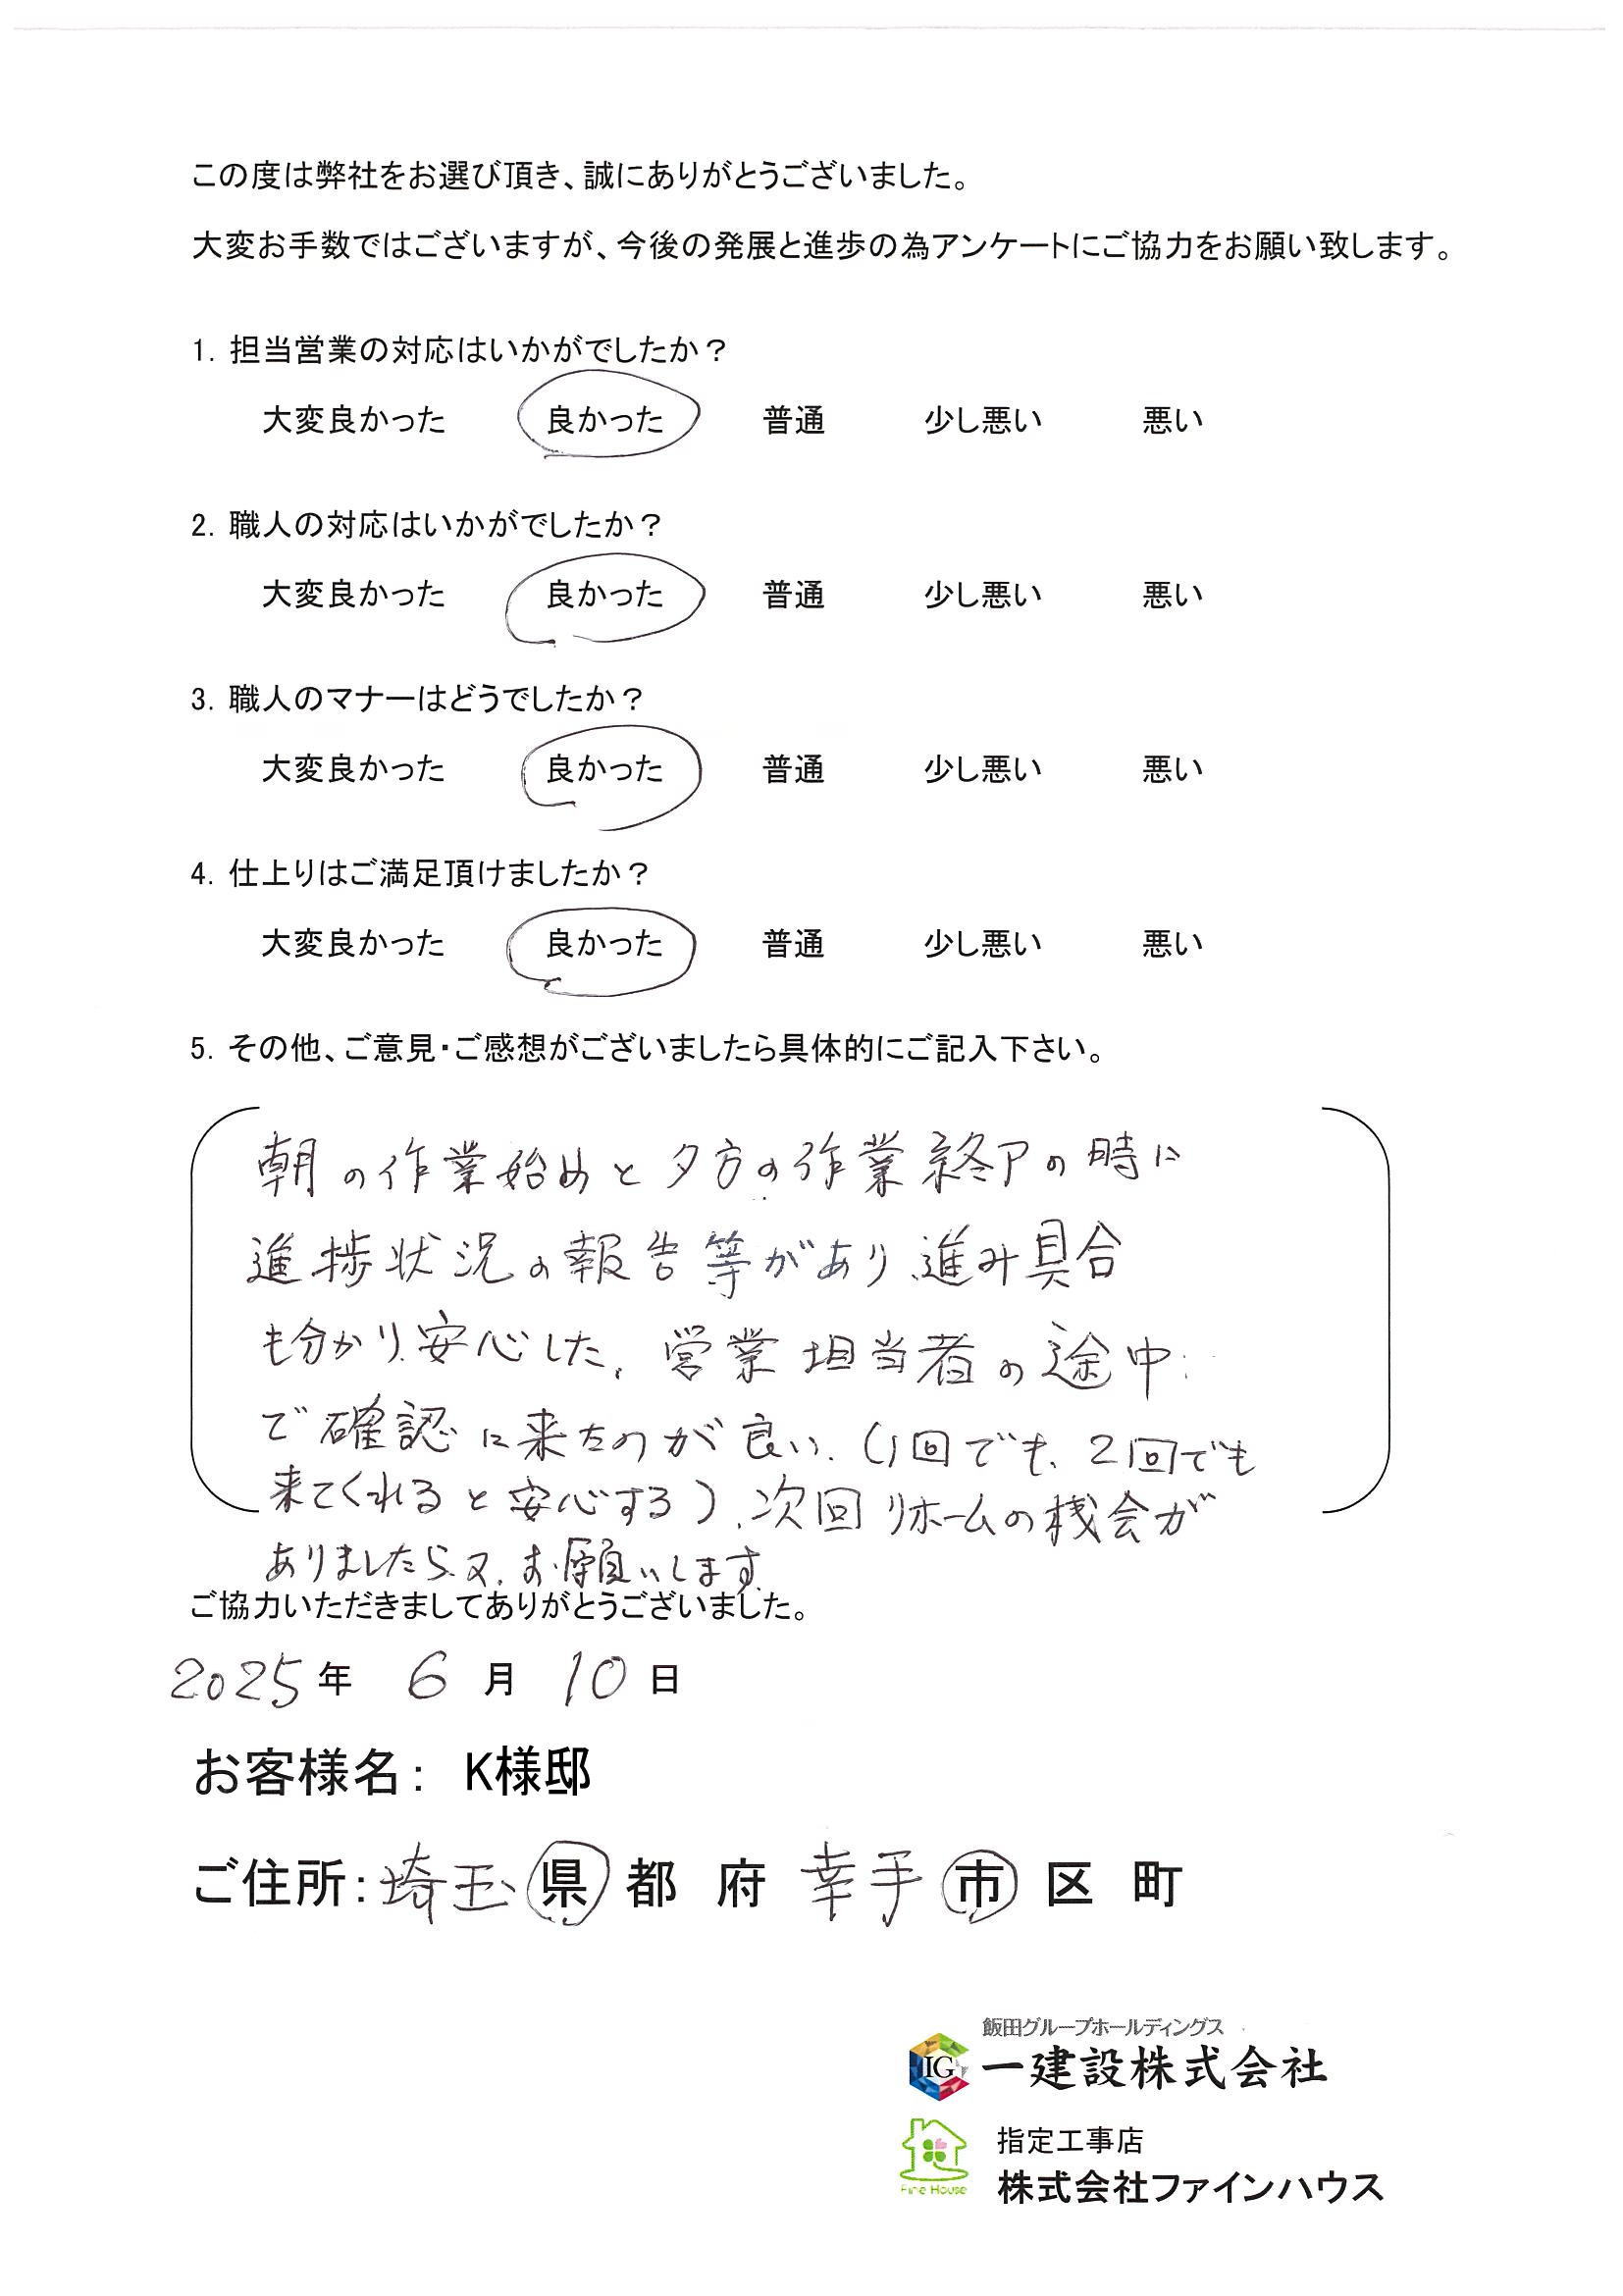 この度は弊社をお選び頂き、誠にありがとうございました。
大変お手数ではございますが、今後の発展と進歩の為アンケートにご協力をお願い致します。
1. 担当営業の対応はいかがでしたか？
大変良かった 良かった 普通 少し悪い 悪い
2. 職人の対応はいかがでしたか？
大変良かった 良かった 普通 少し悪い 悪い
3. 職人のマナーはどうでしたか？
大変良かった 良かった 普通 少し悪い 悪い
4. 仕上りはご満足頂けましたか？
大変良かった 良かった 普通 少し悪い 悪い
5. その他、ご意見・ご感想がございましたら具体的にご記入下さい。
朝の作業始めと夕方の作業終了の時に
進捗状況の報告等があり、進み具合
も分かり、安心した。営業担当者の途中
で確認に来たのが良い。(1回でも、2回でも
来てくれると安心する)、次回リホームの機会が
ありましたら、又、お願いします。
ご協力いただきましてありがとうございました。
2025年 6月 10日
お客様名： K様邸
ご住所：埼玉県 都 府 幸手市 区 町
飯田グループホールディングス
IG 一建設株式会社
指定工事店
Fine House 株式会社ファインハウス